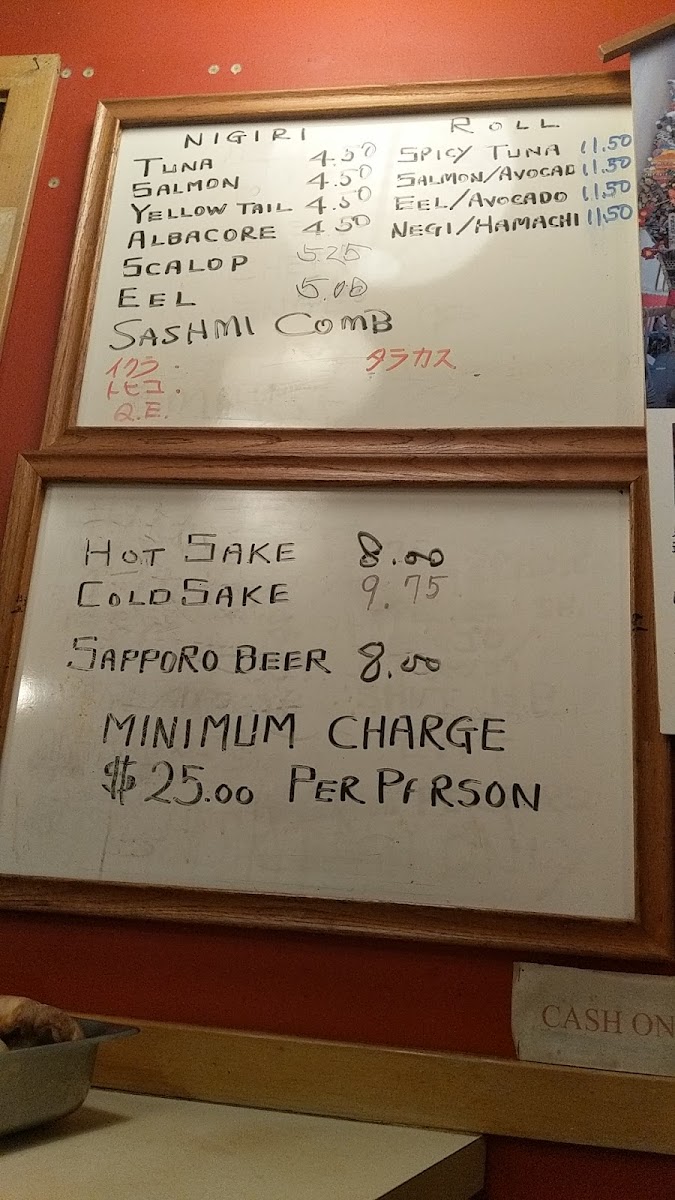 NIGIRI ROLL
TUNA 4.50 SPICY TUNA 11.50
SALMON 4.50 SALMON/AVOCAD 11.50
YELLOW TAIL 4.50 EEL/AVOCADO 11.50
ALBACORE 4.50 NEGI/HAMACHI 11.50
SCALOP 5.25
EEL 5.00
SASHMI COMB
イクラ. タラカス
トビコ.
Q.E.
HOT SAKE 8.00
COLD SAKE 9.75
SAPPORO BEER 8.00
MINIMUM CHARGE
$25.00 PER PERSON
CASH ON